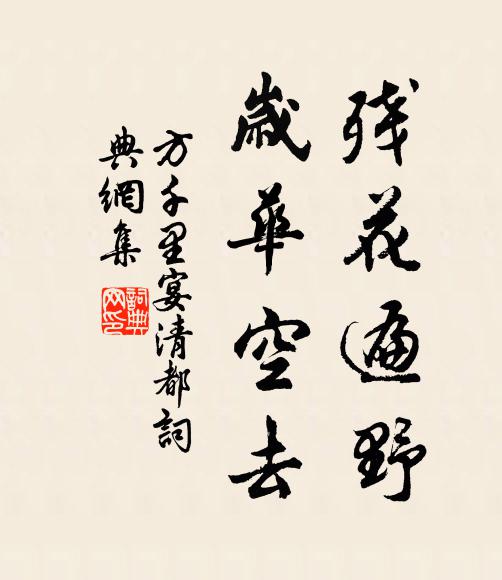 残花遍野
歲華空去
方千里宴清都詞
典網集
詞典
网印